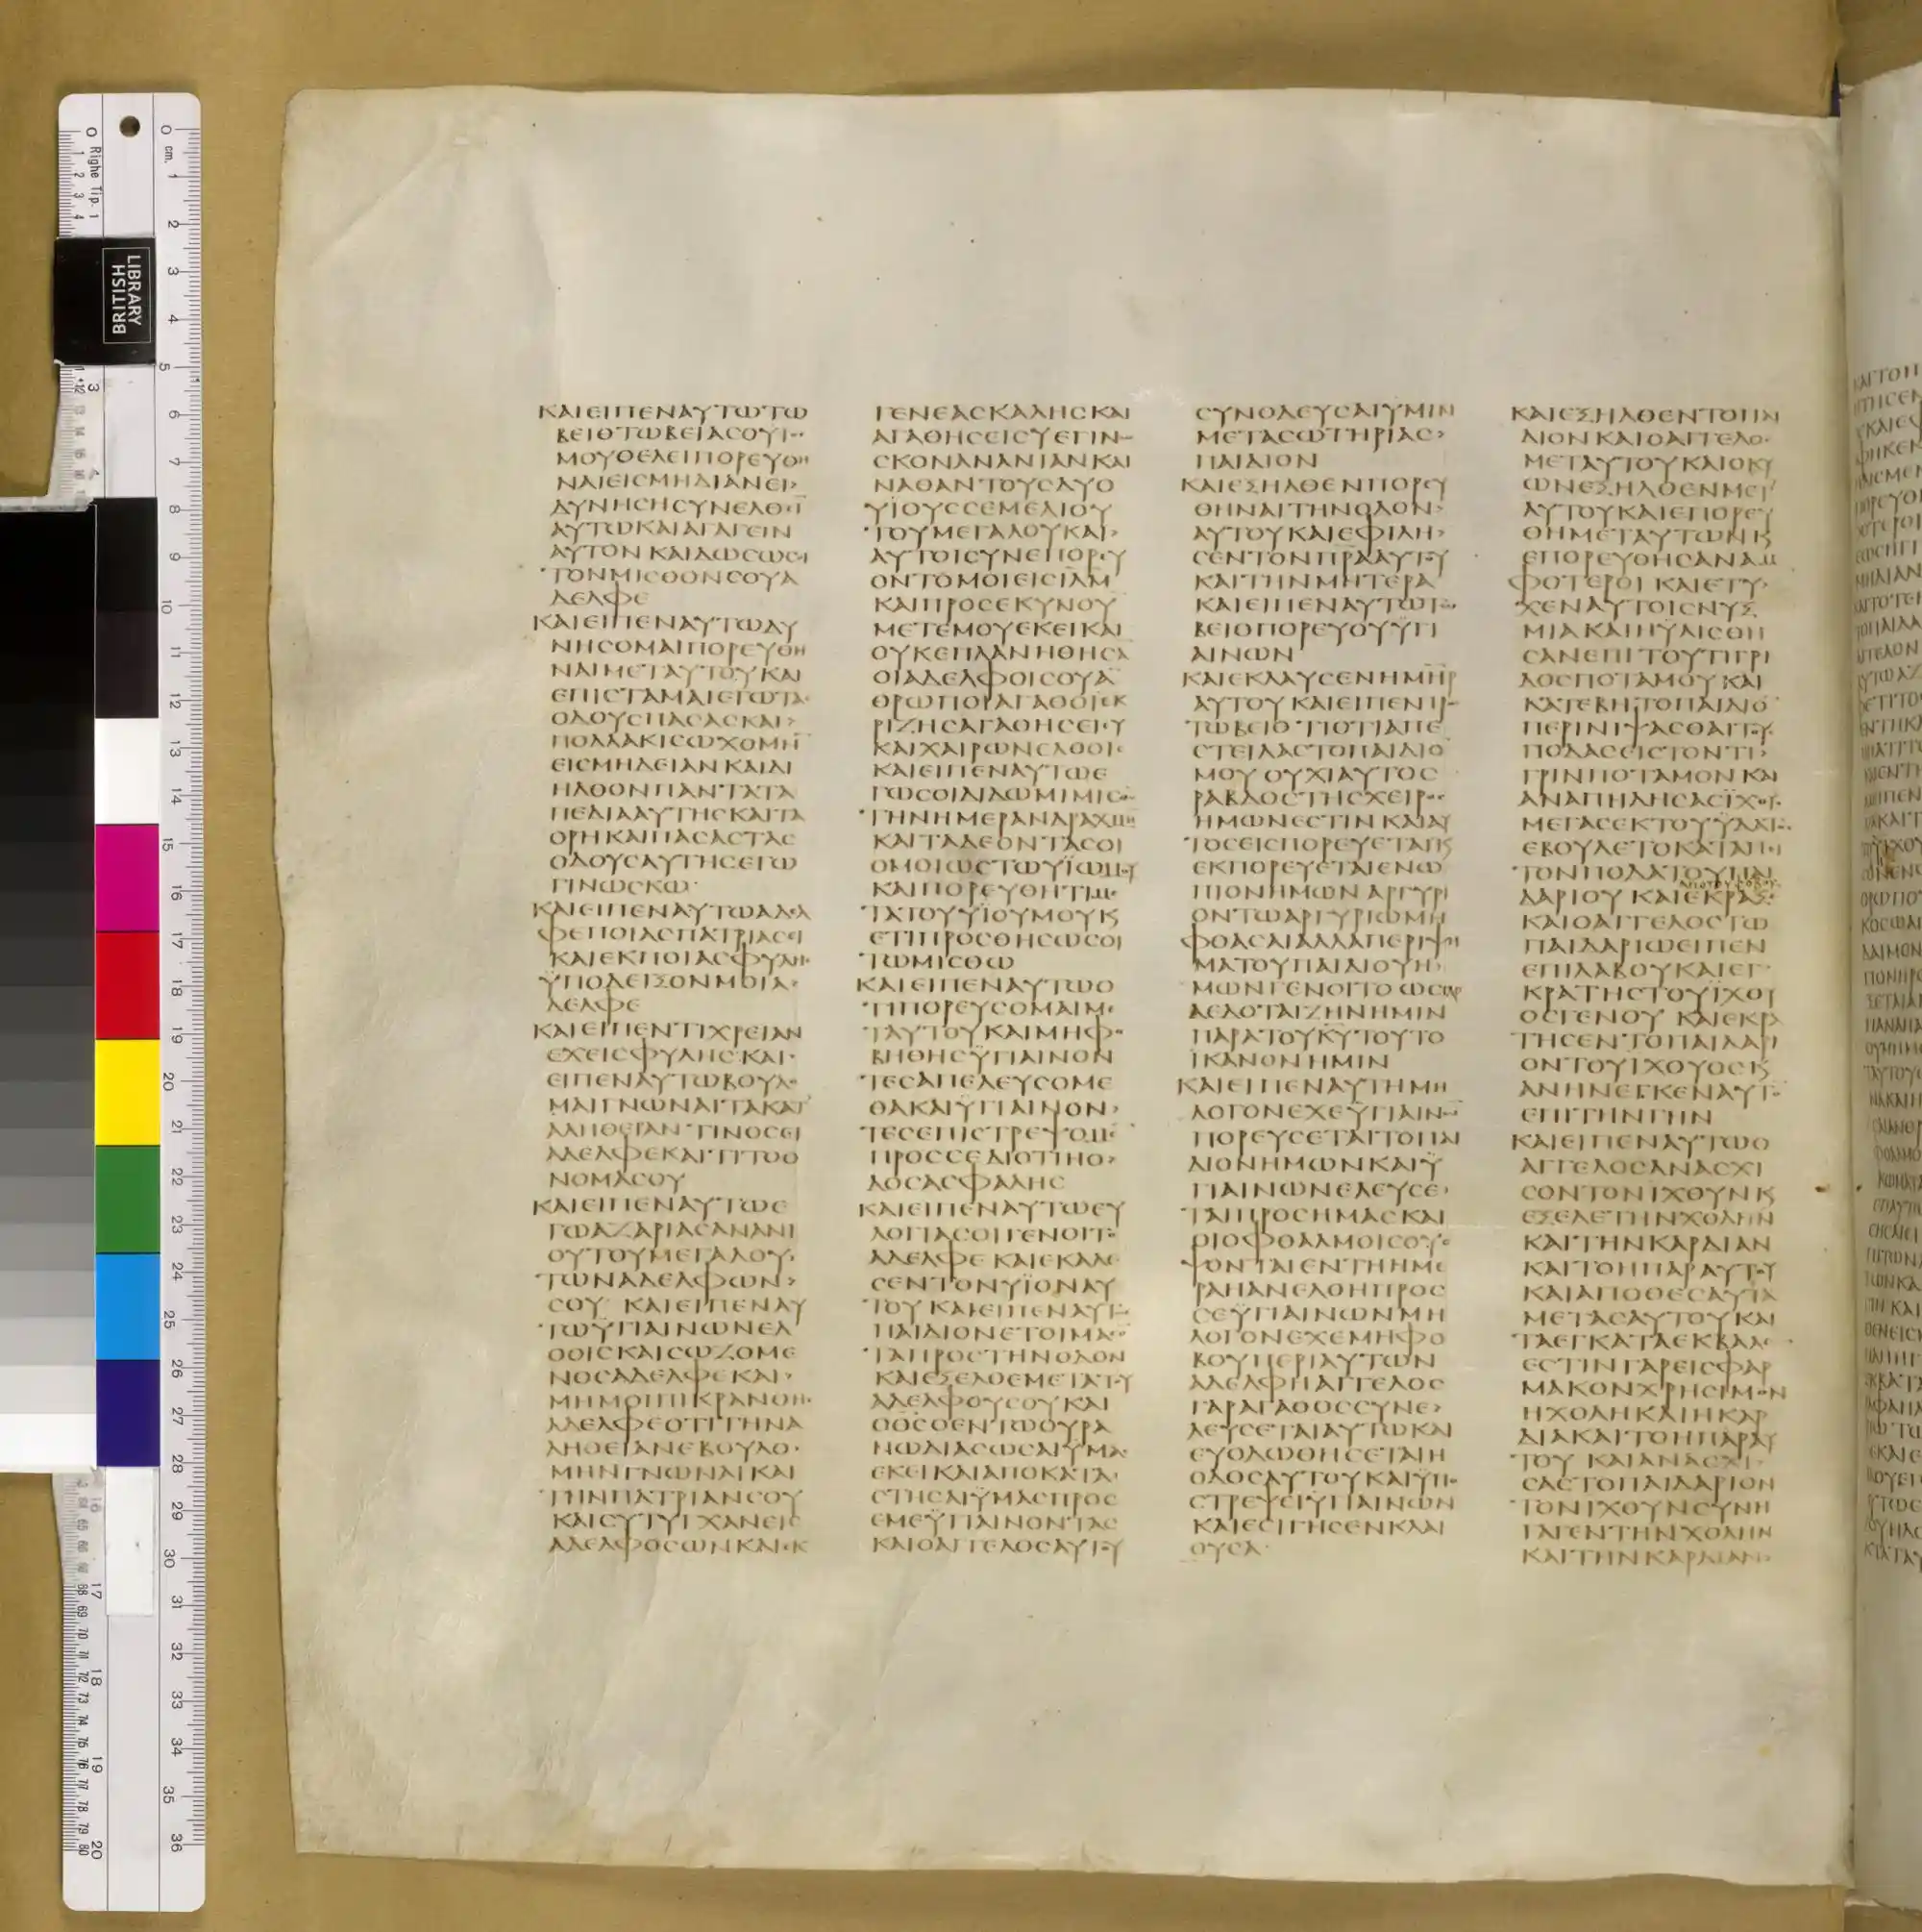 Righe Tip. 1
cm.
BRITISH
LIBRARY
ΚΑΙΕΙΠΕΝΑΥΤΩΤΩ
ΒΕΙΘΤΩΒΕΙΑCΟΥΙ
ΜΟΥΘΕΛΕΙΠΟΡΕΥΘΗ
ΝΑΙΕΙCΜΗΔΙΑΝΕΙ
ΔΥΝΗCΗCΥΝΕΛΘΙ
ΑΥΤΩΚΑΙΑΓΑΓΕΙΝ
ΑΥΤΟΝΚΑΙΔΩCΩCΟΙ
ΤΟΝΜΙCΘΟΝCΟΥΑ
ΔΕΛΦΕ
ΚΑΙΕΙΠΕΝΑΥΤΩΔΥ
ΝΗCΟΜΑΙΠΟΡΕΥΘΗ
ΝΑΙΜΕΤΑΥΤΟΥΚΑΙ
ΕΠΙCΤΑΜΑΙΕΓΩΤΑ
ΟΔΟΥCΠΑCΑCΚΑΙ
ΠΟΛΛΑΚΙCΩΧΟΜΗ
ΕΙCΜΗΔΕΙΑΝΚΑΙΔΙ
ΗΛΘΟΝΠΑΝΤΑΤΑ
ΠΕΔΙΑΑΥΤΗCΚΑΙΤΑ
ΟΡΗΚΑΙΠΑCΑCΤΑC
ΟΔΟΥCΑΥΤΗCΕΓΩ
ΓΙΝΩCΚΩ
ΚΑΙΕΙΠΕΝΑΥΤΩΑΔΕΛ
ΦΕΠΟΙΑCΠΑΤΡΙΑCΕΙ
ΚΑΙΕΚΠΟΙΑCΦΥΛΗ
ΫΠΟΔΕΙΞΟΝΜΟΙΑ
ΔΕΛΦΕ
ΚΑΙΕΙΠΕΝΤΙΧΡΕΙΑΝ
ΕΧΕΙCΦΥΛΗCΚΑΙ
ΕΙΠΕΝΑΥΤΩΒΟΥΛΟ
ΜΑΙΓΝΩΝΑΙΤΑΚΑΤ
ΑΛΗΘΕΙΑΝΤΙΝΟCΕΙ
ΑΔΕΛΦΕΚΑΙΤΙΤΟΟ
ΝΟΜΑCΟΥ
ΚΑΙΕΙΠΕΝΑΥΤΩΕ
ΓΩΑΖΑΡΙΑCΑΝΑΝΙ
ΟΥΤΟΥΜΕΓΑΛΟΥ
ΤΩΝΑΔΕΛΦΩΝ
CΟΥ ΚΑΙΕΙΠΕΝΑΥ
ΤΩΥΓΙΑΙΝΩΝΕΛ
ΘΟΙCΚΑΙCΩΖΟΜΕ
ΝΟCΑΔΕΛΦΕΚΑΙ
ΜΗΜΟΙΠΙΚΡΑΝΘΗ
ΑΔΕΛΦΕΟΤΙΤΗΝΑ
ΛΗΘΕΙΑΝΕΒΟΥΛΟ
ΜΗΝΓΝΩΝΑΙΚΑΙ
ΤΗΝΠΑΤΡΙΑΝCΟΥ
ΚΑΙCΥΤΥΓΧΑΝΕΙC
ΑΔΕΛΦΟCΩΝΚΑΙΕΚ
ΓΕΝΕΑCΚΑΛΗCΚΑΙ
ΑΓΑΘΗCΕΙCΥΕΓΙΝ
CΚΟΝΑΝΑΝΙΑΝΚΑΙ
ΝΑΘΑΝΤΟΥCΔΥΟ
ΥΪΟΥCCΕΜΕΛΙΟΥ
ΤΟΥΜΕΓΑΛΟΥΚΑΙ
ΑΥΤΟΙCΥΝΕΠΟΡΕΥ
ΟΝΤΟΜΟΙΕΙCΙΛΜ
ΚΑΙΠΡΟCΕΚΥΝΟΥ
ΜΕΤΕΜΟΥΕΚΕΙΚΑΙ
ΟΥΚΕΠΛΑΝΗΘΗCΑ
ΟΙΑΔΕΛΦΟΙCΟΥΑ
ΘΡΩΠΟΙΑΓΑΘΟΙΕΚ
ΡΙΖΗCΑΓΑΘΗCΕΙCΥ
ΚΑΙΧΑΙΡΩΝΕΛΘΟΙC
ΚΑΙΕΙΠΕΝΑΥΤΩΕ
ΓΩCΟΙΔΙΔΩΜΙΜΙCΘΟ
ΤΗΝΗΜΕΡΑΝΔΡΑΧΜΗ
ΚΑΙΤΑΔΕΟΝΤΑCΟΙ
ΟΜΟΙΩCΤΩΥΪΩΜΟΥ
ΚΑΙΠΟΡΕΥΘΗΤΙΜΕ
ΤΑΤΟΥΥΪΟΥΜΟΥΚ
ΕΤΙΠΡΟCΘΗCΩCΟΙ
ΤΩΜΙCΘΩ
ΚΑΙΕΙΠΕΝΑΥΤΩΟ
ΤΙΠΟΡΕΥCΟΜΑΙΜΕ
ΤΑΥΤΟΥΚΑΙΜΗΦΟ
ΒΗΘΗCΫΓΙΑΙΝΟΝ
ΤΕCΑΠΕΛΕΥCΟΜΕ
ΘΑΚΑΙΫΓΙΑΙΝΟΝ
ΤΕCΕΠΙCΤΡΕΨΟΜΕ
ΠΡΟCCΕΔΙΟΤΙΗΟ
ΔΟCΑCΦΑΛΗC
ΚΑΙΕΙΠΕΝΑΥΤΩΕΥ
ΛΟΓΙΑCΟΙΓΕΝΟΙΤΟ
ΑΔΕΛΦΕΚΑΙΕΚΑΛΕ
CΕΝΤΟΝΥΪΟΝΑΥ
ΤΟΥΚΑΙΕΙΠΕΝΑΥΤΩ
ΠΑΙΔΙΟΝΕΤΟΙΜΑ
ΤΑΠΡΟCΤΗΝΟΔΟΝ
ΚΑΙΕΞΕΛΘΕΜΕΤΑΤΟΥ
ΑΔΕΛΦΟΥCΟΥΚΑΙ
ΟΘCΟΕΝΤΩΟΥΡΑ
ΝΩΔΙΑCΩCΑΙΫΜΑ
ΕΚΕΙΚΑΙΑΠΟΚΑΤΑ
CΤΗCΑΙΫΜΑCΠΡΟC
ΕΜΕΫΓΙΑΙΝΟΝΤΑC
ΚΑΙΟΑΓΓΕΛΟCΑΥΤΟΥ
CΥΝΟΔΕΥCΑΙΫΜΙΝ
ΜΕΤΑCΩΤΗΡΙΑC
ΠΑΙΔΙΟΝ
ΚΑΙΕΞΗΛΘΕΝΠΟΡΕΥ
ΘΗΝΑΙΤΗΝΟΔΟΝ
ΑΥΤΟΥΚΑΙΕΦΙΛΗ
CΕΝΤΟΝΠΡΑΑΥΤΟΥ
ΚΑΙΤΗΝΜΗΤΕΡΑ
ΚΑΙΕΙΠΕΝΑΥΤΩΤΩ
ΒΕΙΘΠΟΡΕΥΟΥΫΓΙ
ΑΙΝΩΝ
ΚΑΙΕΚΛΑΥCΕΝΗΜΗΡ
ΑΥΤΟΥΚΑΙΕΙΠΕΝΠΡ
ΤΩΒΕΙΘΤΙΟΤΙΑΠΕ
CΤΕΙΛΑCΤΟΠΑΙΔΙΟ
ΜΟΥΟΥΧΙΑΥΤΟC
ΡΑΒΔΟCΤΗCΧΕΙΡΟC
ΗΜΩΝΕCΤΙΝΚΑΙΑΥ
ΤΟCΕΙCΠΟΡΕΥΕΤΑΙΚ
ΕΚΠΟΡΕΥΕΤΑΙΕΝΩ
ΠΙΟΝΗΜΩΝΑΡΓΥΡΙ
ΟΝΤΩΑΡΓΥΡΙΩΜΗ
ΦΘΑCΑΙΑΛΛΑΠΕΡΙΨΗ
ΜΑΤΟΥΠΑΙΔΙΟΥΗ
ΜΩΝΓΕΝΟΙΤΟΩCΩ
ΔΕΔΟΤΑΙΖΗΝΗΜΙΝ
ΠΑΡΑΤΟΥΚΥΤΟΥΤΟ
ΪΚΑΝΟΝΗΜΙΝ
ΚΑΙΕΙΠΕΝΑΥΤΗΜΗ
ΛΟΓΟΝΕΧΕΫΓΙΑΙΝΩ
ΠΟΡΕΥCΕΤΑΙΤΟΠΑΙ
ΔΙΟΝΗΜΩΝΚΑΙΫ
ΓΙΑΙΝΩΝΕΛΕΥCΕ
ΤΑΙΠΡΟCΗΜΑCΚΑΙ
ΟΙΟΦΘΑΛΜΟΙCΟΥΟ
ΨΟΝΤΑΙΕΝΤΗΗΜΕ
ΡΑΗΑΝΕΛΘΗΠΡΟC
CΕΫΓΙΑΙΝΩΝΜΗ
ΛΟΓΟΝΕΧΕΜΗΦΟ
ΒΟΥΠΕΡΙΑΥΤΩΝ
ΑΔΕΛΦΗΑΓΓΕΛΟC
ΓΑΡΑΓΑΘΟCCΥΝΕ
ΛΕΥCΕΤΑΙΑΥΤΩΚΑΙ
ΕΥΟΔΩΘΗCΕΤΑΙΗ
ΟΔΟCΑΥΤΟΥΚΑΙΫΠΟ
CΤΡΕΨΕΙΫΓΙΑΙΝΩΝ
ΚΑΙΕCΙΓΗCΕΝΚΛΑΙ
ΟΥCΑ
ΚΑΙΕΞΗΛΘΕΝΤΟΠΑΙ
ΔΙΟΝΚΑΙΟΑΓΓΕΛΟC
ΜΕΤΑΥΤΟΥΚΑΙΟΚΥ
ΩΝΕΞΗΛΘΕΝΜΕΤ
ΑΥΤΟΥΚΑΙΕΠΟΡΕΥ
ΘΗΜΕΤΑΥΤΩΝΚ
ΕΠΟΡΕΥΘΗCΑΝΑΜ
ΦΟΤΕΡΟΙΚΑΙΕΤΥ
ΧΕΝΑΥΤΟΙCΝΥΞ
ΜΙΑΚΑΙΗΫΛΙCΘΗ
CΑΝΕΠΙΤΟΥΤΙΓΡΙ
ΔΟCΠΟΤΑΜΟΥΚΑΙ
ΚΑΤΕΒΗΤΟΠΑΙΔΙΟ
ΠΕΡΙΝΙΨΑCΘΑΙΤΟΥ
ΠΟΔΑCΕΙCΤΟΝΤΙ
ΓΡΙΝΠΟΤΑΜΟΝΚΑΙ
ΑΝΑΠΗΔΗCΑCΪΧΘΥC
ΜΕΓΑCΕΚΤΟΥΫΔΑΤΟC
ΕΒΟΥΛΕΤΟΚΑΤΑΠΙ
ΤΟΝΠΟΔΑΤΟΥΠΑΙ
ΔΑΡΙΟΥΚΑΙΕΚΡΑΞΕ
ΚΑΙΟΑΓΓΕΛΟCΤΩ
ΠΑΙΔΑΡΙΩΕΙΠΕΝ
ΕΠΙΛΑΒΟΥΚΑΙΕΓ
ΚΡΑΤΗCΤΟΥΪΧΘΥ
ΟCΓΕΝΟΥ ΚΑΙΕΚΡΑ
ΤΗCΕΝΤΟΠΑΙΔΑΡΙ
ΟΝΤΟΥΙΧΘΥΟCΚ
ΑΝΗΝΕΓΚΕΝΑΥΤΟ
ΕΠΙΤΗΝΓΗΝ
ΚΑΙΕΙΠΕΝΑΥΤΩΟ
ΑΓΓΕΛΟCΑΝΑCΧΙ
CΟΝΤΟΝΙΧΘΥΝΚ
ΕΞΕΛΕΤΗΝΧΟΛΗΝ
ΚΑΙΤΗΝΚΑΡΔΙΑΝ
ΚΑΙΤΟΗΠΑΡΑΥΤΟΥ
ΚΑΙΑΠΟΘΕCΑΥΤΑ
ΜΕΤΑCΑΥΤΟΥΚΑΙ
ΤΑΕΓΚΑΤΑΕΚΒΑΛΕ
ΕCΤΙΝΓΑΡΕΙCΦΑΡ
ΜΑΚΟΝΧΡΗCΙΜΟΝ
ΗΧΟΛΗΚΑΙΗΚΑΡ
ΔΙΑΚΑΙΤΟΗΠΑΡΑΥ
ΤΟΥ ΚΑΙΑΝΑCΧΙ
CΑCΤΟΠΑΙΔΑΡΙΟΝ
ΤΟΝΙΧΘΥΝCΥΝΗ
ΓΑΓΕΝΤΗΝΧΟΛΗΝ
ΚΑΙΤΗΝΚΑΡΔΙΑΝ